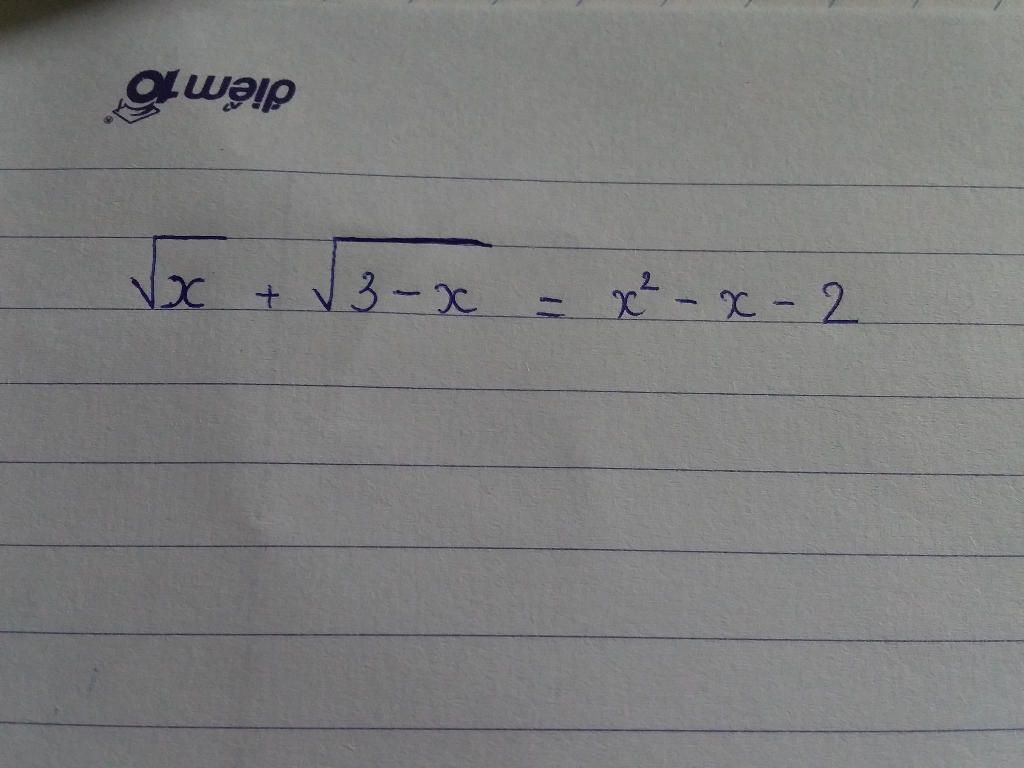 điểm10
√x + √(3 - x) = x² - x - 2